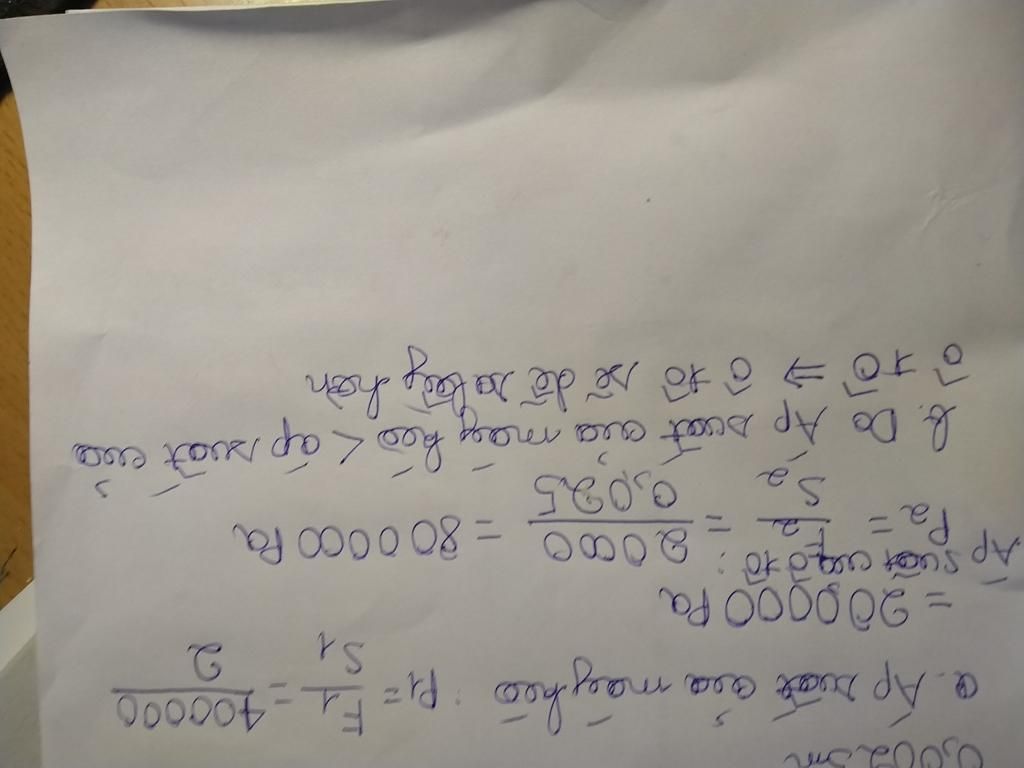 0,0025m
a. Áp suất của máy kéo: P1 = F1/S1 = 400000/2
= 200000 Pa
Áp suất của ô tô:
P2 = F2/S2 = 20000/0,025 = 800000 Pa
b. Do Áp suất của máy kéo < áp suất của
ô tô ⇒ ô tô sẽ dễ sa lầy hơn